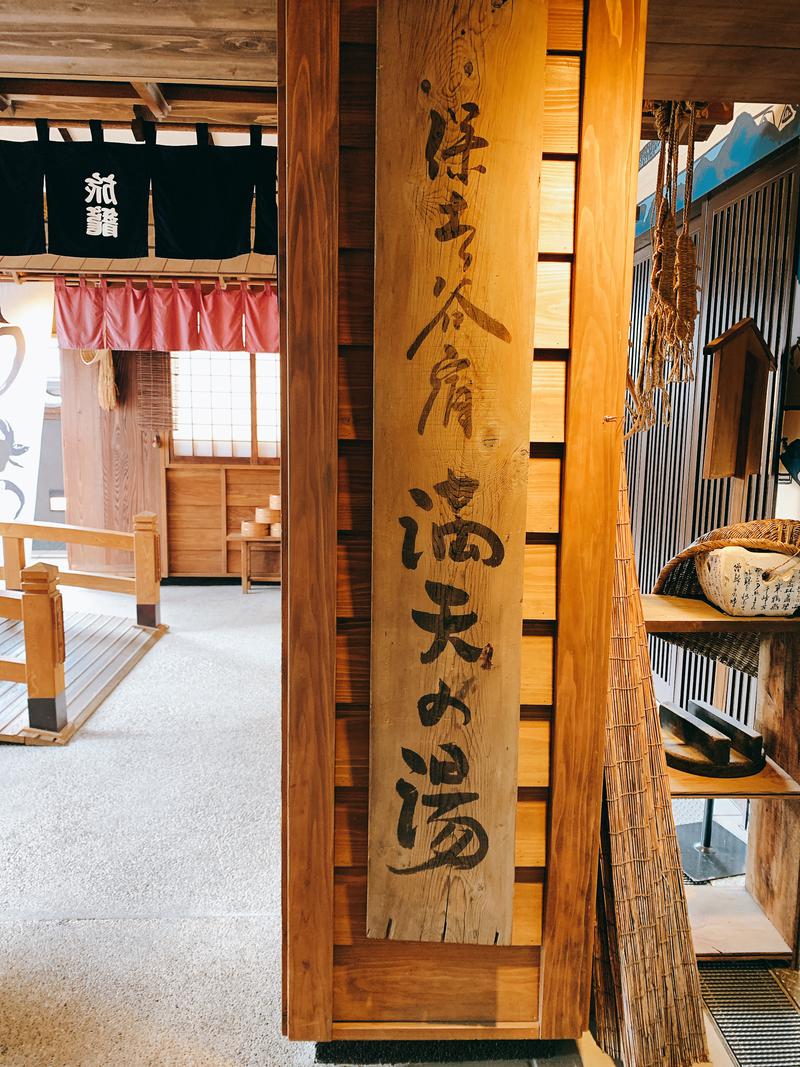 旅籠
保土ヶ谷宿
満天の湯